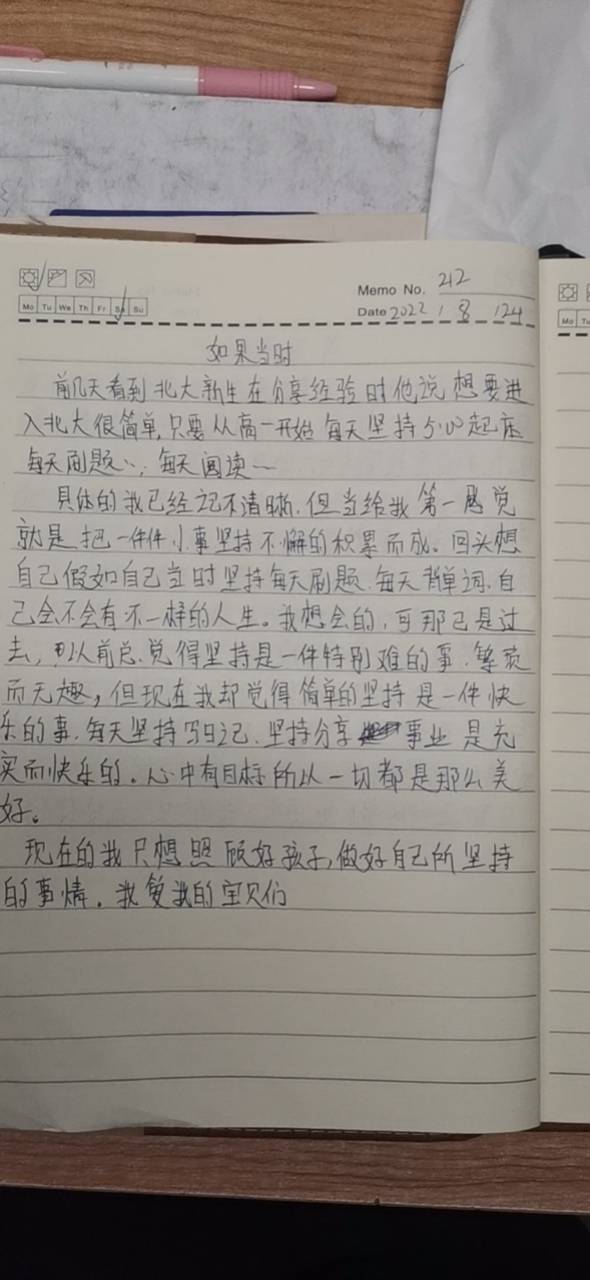 Memo No. 212
Mo Tu We Th Fr Sa Su
Date 2022 / 8 / 24
如果当时
前几天看到北大新生在分享经验时他说想要进
入北大很简单,只要从高一开始每天坚持5:00起床
每天刷题、、, 每天阅读一
具体的我已经记不清晰.但当给我第一感觉
就是把一件件小事坚持不懈的积累而成。回头想
自己假如自己当时坚持每天刷题.每天背单词.自
己会不会有不一样的人生。我想会的,可那已是过
去,以前总觉得坚持是一件特别难的事.繁琐
而无趣,但现在我却觉得简单的坚持是一件快
乐的事.每天坚持写日记.坚持分享事业是充
实而快乐的.心中有目标所以一切都是那么美
好。
现在的我只想照顾好孩子,做好自己所坚持
的事情.我爱我的宝贝们
Mo Tu